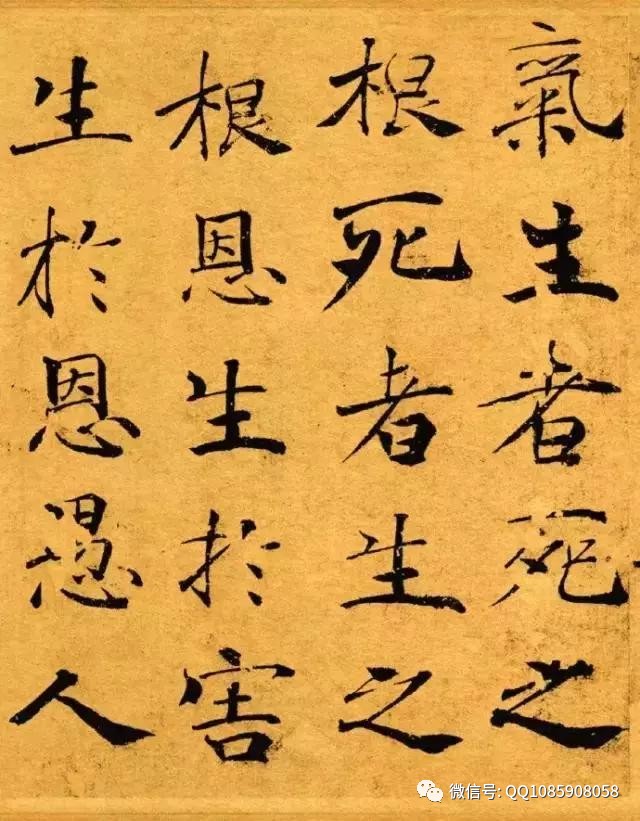 氣生者死之
根死者生之
根恩生於害
生於恩愚人
微信号: QQ1085908058